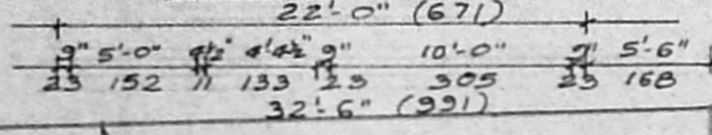 22'-0" (671)
9" 5'-0" 4½" 4'-4½" 9" 10'-0" 9" 5'-6"
23 152 11 133 23 305 23 168
32'-6" (991)